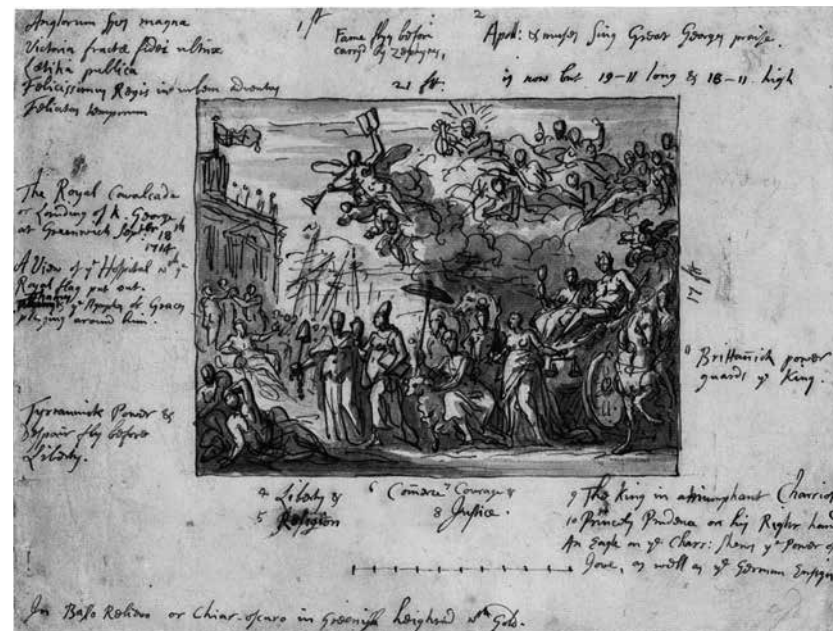 Anglorum spes magna
Victoria fractæ fidei ultrix
Lætitia publica
Felicissimum Regis in urbem adventus
Felicitas temporum
1 st
Fame flys before
carry'd by Zephyrs,
21 ft.
2
Apoll: & muses sing Great Georges praise.
is now but 19-11 long & 18-11 high
The Royal Cavalcade
or Landing of K. George
at Greenwich Septbr 18th
1714
A View of ye Hospital wth ye
Royal flag put out.
ye Nymphs & Graces
playing around him.
Tyrannick Power &
despair fly before
Liberty.
17 ft
11 Brittannick power
guards ye King.
4 Liberty &
5 Religion
6 Comerce 7 Courage &
8 Justice.
9 The King in a triumphant Charriot
10 Princely Prudence on his Right hand
An Eagle on ye Charr: shews ye Power of
Jove, as well as ye German Ensign
In Baso Relievo or Chiar-oscuro in Greenish heightned wth Gold.